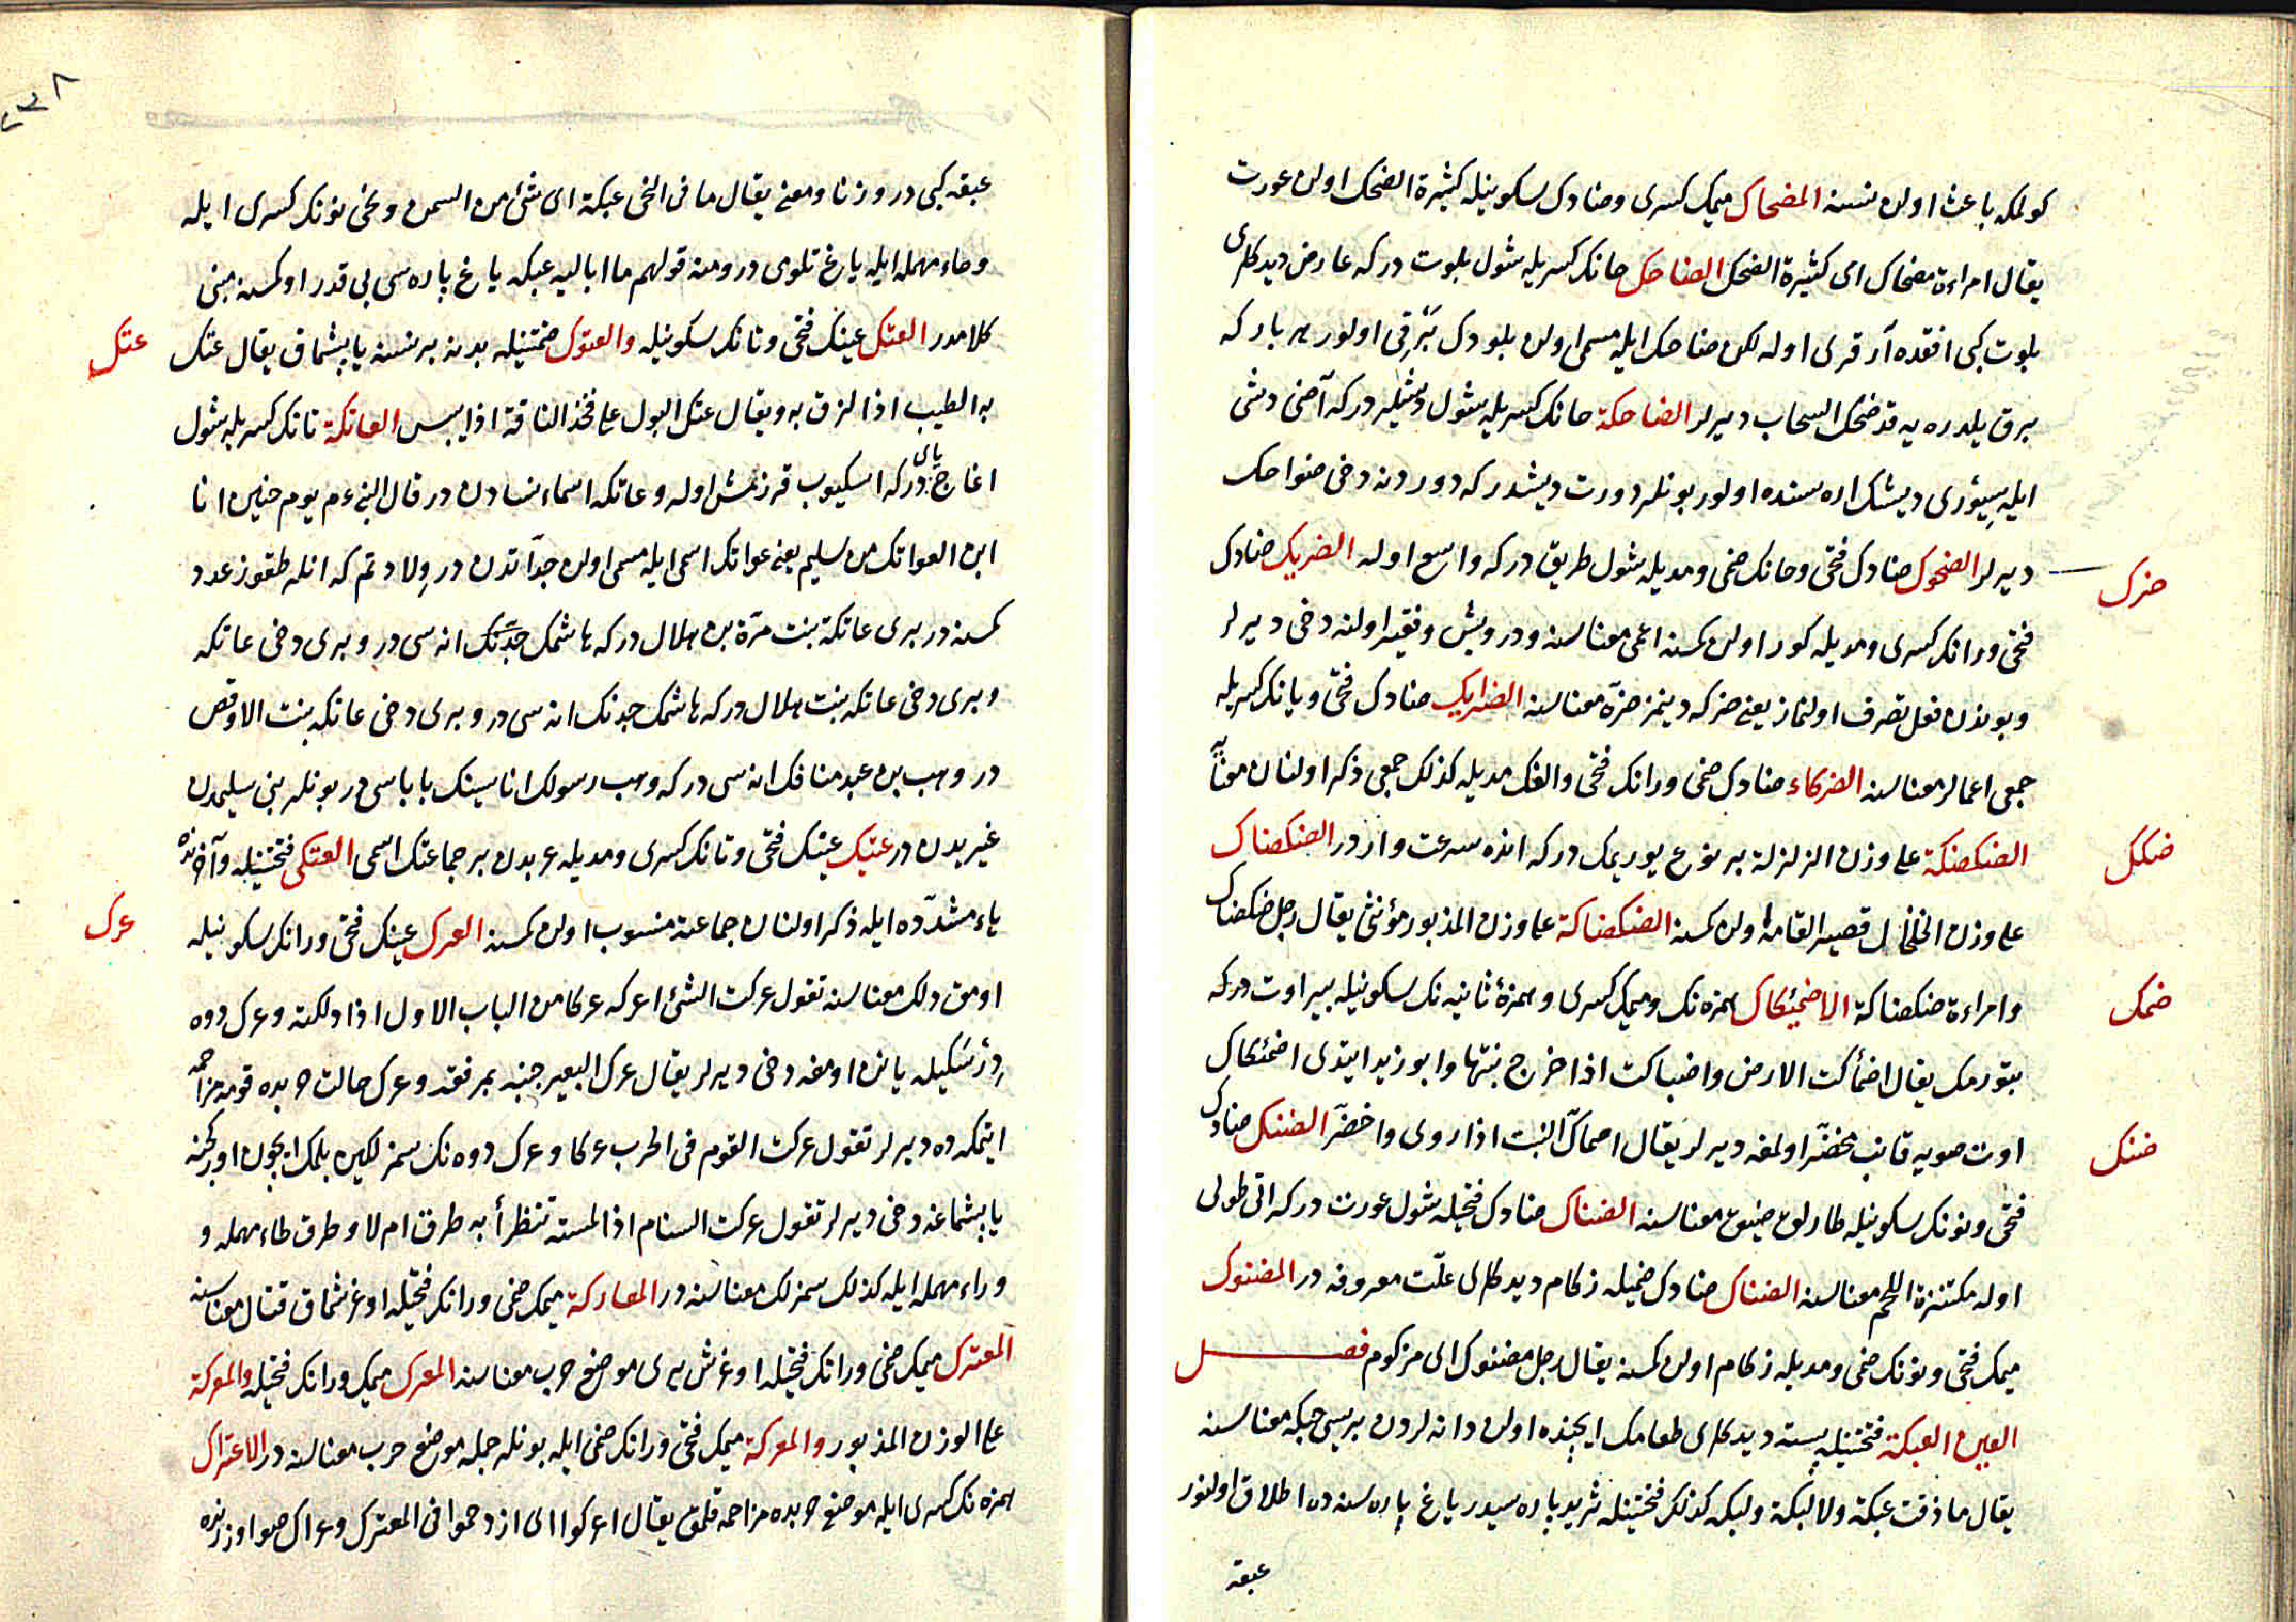 كولمكه باعث اولن نسنه المضحاك ميمك كسرى وضادك سكونيله كثيرة الضحك اولن عورت
يقال امراءة مضحاك اى كثيرة الضحك الضاحك حانك كسريله شول بلوت دركه عارض ديدكلرى
بلوت كبى افقده آرقرى اوله لكن ضاحك ايله مسمى اولن بلودك برقى اولور هر باركه
برق يلدره يه قد ضحك السحاب ديرلر الضاحكة حانك كسريله شول ديشلردركه آضى دشى
ايله سيورى ديشك اره سنده اولور بونلر دورت ديشدركه دوردنه دخى ضواحك
ديرلر الضحوك ضادك فتحى وحانك ضمى ومديله شول طريق دركه واسع اوله الضريك ضادك
ضرك
فتحى ورانك كسرى ومديله كور اولن كمسنه اعمى معناسنه ودرويش وفقير اولنه دخى ديرلر
وبوندن فعل تصرف اولنماز يعنى ضركه دينمز ضره معناسنه الضرايك ضادك فتحى ويانك كسريله
جمعى اعمالر معناسنه الضركاء ضادك ضمى ورانك فتحى والفك مديله كذلك جمعى ذكر اولنان معنايه
الضكضكة على وزن الزلزلة بر نوع يوريمك دركه انده سرعت واردر الضكضاك
ضكك
على وزن الخلخال قصير القامه اولن كمسنه الضكضاكة على وزن المذبور مؤنثى يقال رجل ضكضاك
وامراءة ضكضاكة الاضمئكاك همزه نك وميمك كسرى وهمزۀ ثانيه نك سكونيله ير اوت دركه
ضمك
بتورمك يقال اضمأكت الارض واضباكت اذا خرج نبتها وابوزيد ايتدى اضمئكاك
اوت صويه قانب مخضر اولمغه ديرلر يقال اضمأك النبت اذا روى واخضر الضنك ضادك
ضنك
فتحى ونونك سكونيله طارلق ضيق معناسنه الضناك ضادك فتحيله شول عورت دركه اتى طولى
اوله مكتنزة اللحم معناسنه الضناك ضادك ضميله زكام ديدكلرى علت معروفه در المضنوك
ميمك فتحى ونونك ضمى ومديله زكام اولن كمسنه يقال رجل مضنوك اى مزكوم فصل
العين العبكة فتحتينله بسته ديدكلرى طعامك ايچنده اولن دانه لردن بريسى حبكه معناسنه
يقال ما ذقت عبكة ولا لبكة ولبكه كذلك فتحتينله ثريد پاره سيدر ياغ پاره سنه ده اطلاق اولنور
عبقه
عبقه كبى در وزنا ومعنى يقال ما فى النحى عبكة اى شئ من السمن ونحى نونك كسرى ايله
وحاء مهمله ايله ياغ تلوى در ومنه قولهم ما اباليه عبكه ياغ پاره سى بى قدر اوكمسنه مبنى
كلامدر العتك عينك فتحى وتانك سكونيله والعتوك ضمتينله بدنه بر نسنه ياپشماق يقال عتك
عتك
به الطيب اذا لزق به ويقال عتك البول على فخذ الناقة اذا يبس العاتكة تانك كسريله شول
اغاج ياى دركه اسكيوب قزرمش اوله وعاتكه اسماء نسادن در قال النبى ءم يوم حنين انا
ابن العواتك من سليم يعنى عواتك اسمى ايله مسمى اولن جداتدن در ولادتم كه انلر طقوز عدد
كمسنه در برى عاتكة بنت مرة بن هلال دركه هاشمك جدنك انه سى در وبرى دخى عاتكه
وبرى دخى عاتكه بنت هلال دركه هاشمك جدنك انه سى در وبرى دخى عاتكه بنت الاوقص
در وهب بن عبد منافك انه سى دركه وهب رسولك اناسينك باباسى در بونلر بنى سليمدن
غيريدن در عتيك عينك فتحى وتانك كسرى ومديله عربدن بر جماعتك اسمى العتكى فتحتينله وآخرنده
ياء مشدده ايله ذكر اولنان جماعته منسوب اولن كمسنه العرك عينك فتحى ورانك سكونيله
عرك
اومق دلك معناسنه تقول عركت الشئ اعركه عركا من الباب الاول اذا دلكته وعرك دوه
درسكيله يانن اومغه دخى ديرلر يقال عرك البعير جنبه بمرفقه وعرك حالت حربده قومه مزاحمه
ايتمكه ده ديرلر تقول عركت القوم فى الحرب عركا وعرك دوه نك سمزلكين بلمك ايچون اوركجنه
ياپشماغه دخى ديرلر تقول عركت السنام اذا لمسته تنظر أبه طرق ام لا وطرق طاء مهمله و
وراء مهمله ايله كذلك سمزلك معناسنه در المعاركة ميمك ضمى ورانك فتحيله اوغرشماق قتال معناسنه
المعترك ميمك ضمى ورانك فتحيله اوغرش يرى موضع حرب معناسنه المعرك ميمك ورانك فتحيله والمعركة
على الوزن المذبور والمعركة ميمك فتحى ورانك ضمى ايله بونلر جمله موضع حرب معناسنه در الاعتراك
همزه نك كسرى ايله موضع حربده مزاحمه قلمق يقال اعتركوا اى ازدحموا فى المعترك وعراك صو اوزرنده